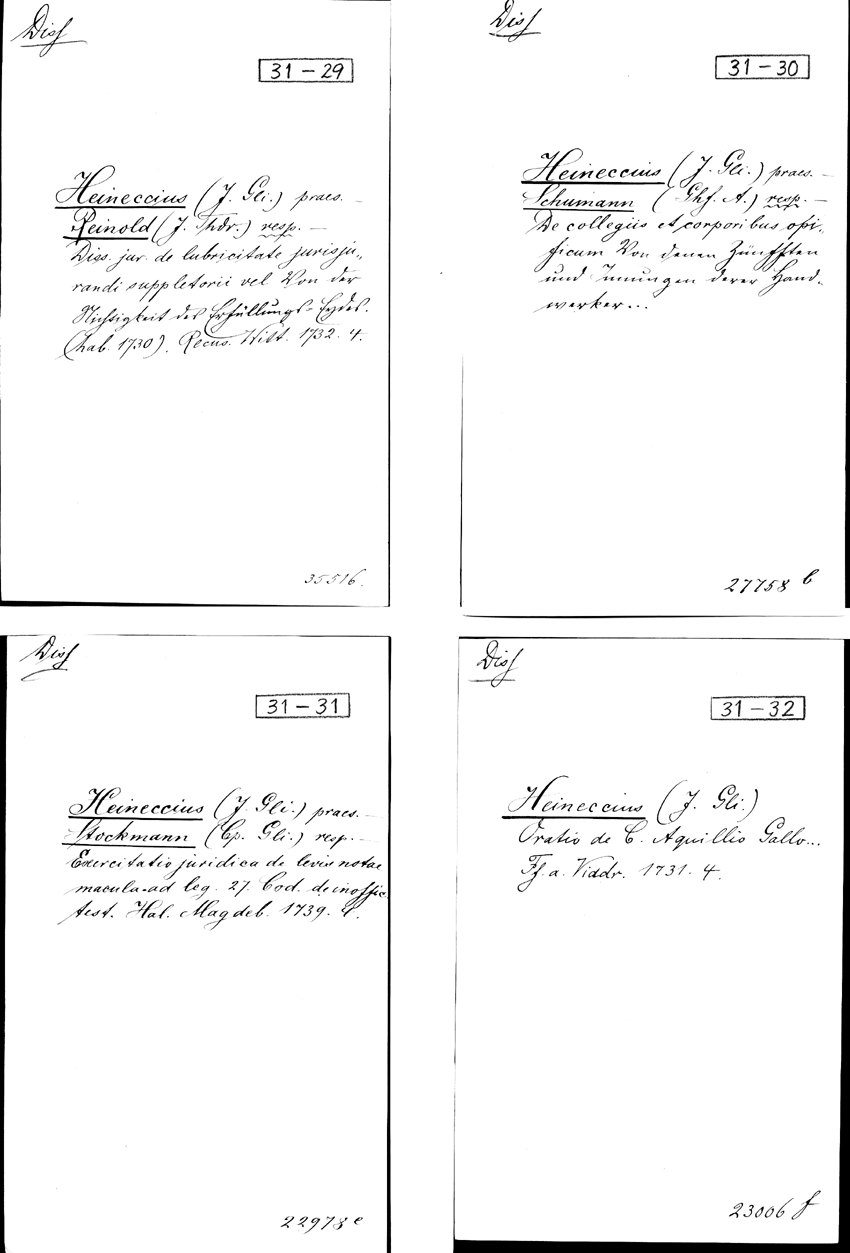 Diss
31 – 29
Heineccius (J. Gli.) praes. –
Reinold (J. Thdr.) resp. –
Diss. jur. de lubricitate jurisju-
randi suppletorii vel Von der
Nichtigkeit des Erfüllungs-Eydes.
(hab. 1730). Recus. Witt. 1732. 4.
35516.
Diss
31 – 30
Heineccius (J. Gli.) praes. –
Schumann (Ghf. A.) resp. –
De collegiis et corporibus opi-
ficum Von denen Zünfften
und Innungen derer Hand-
werker...
27758 b
Diss
31 – 31
Heineccius (J. Gli.) praes. –
Stockmann (Cp. Gli.) resp. –
Exercitatio juridica de levis notae
macula ad leg. 27. Cod. de inoffic.
test. Hal. Magdeb. 1739. 4.
22978 e
Diss
31 – 32
Heineccius (J. Gli.)
Oratio de C. Aquillio Gallo...
Ff. a. Viadr. 1731. 4.
23006 f